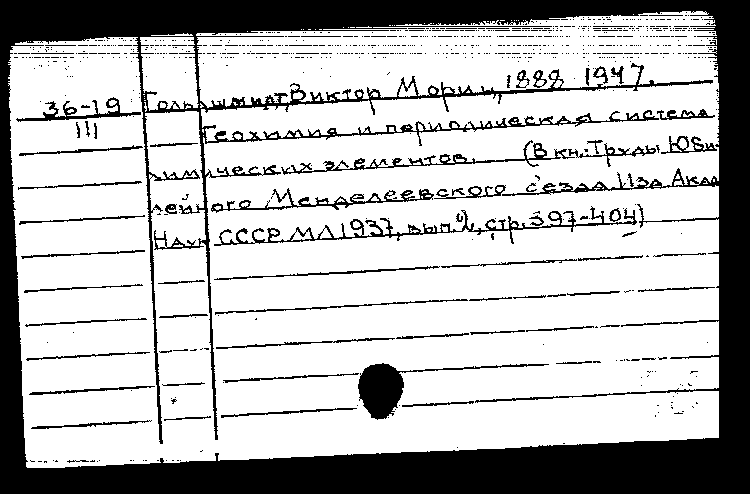 36-19 Гольдшмидт, Виктор Мориц, 1888 1947.
III Геохимия и периодическая система
химических элементов. (В кн.: Труды Юби-
лейного Менделеевского съезда Изд Акад
Наук СССР. МЛ 1937, вып. 2, стр. 397-404)